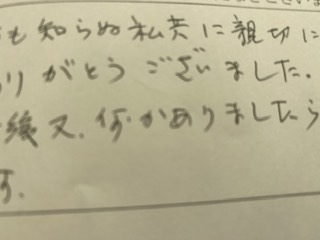 も知らぬ私共に親切に
りがとうございました.
後又.何かありましたら
す.